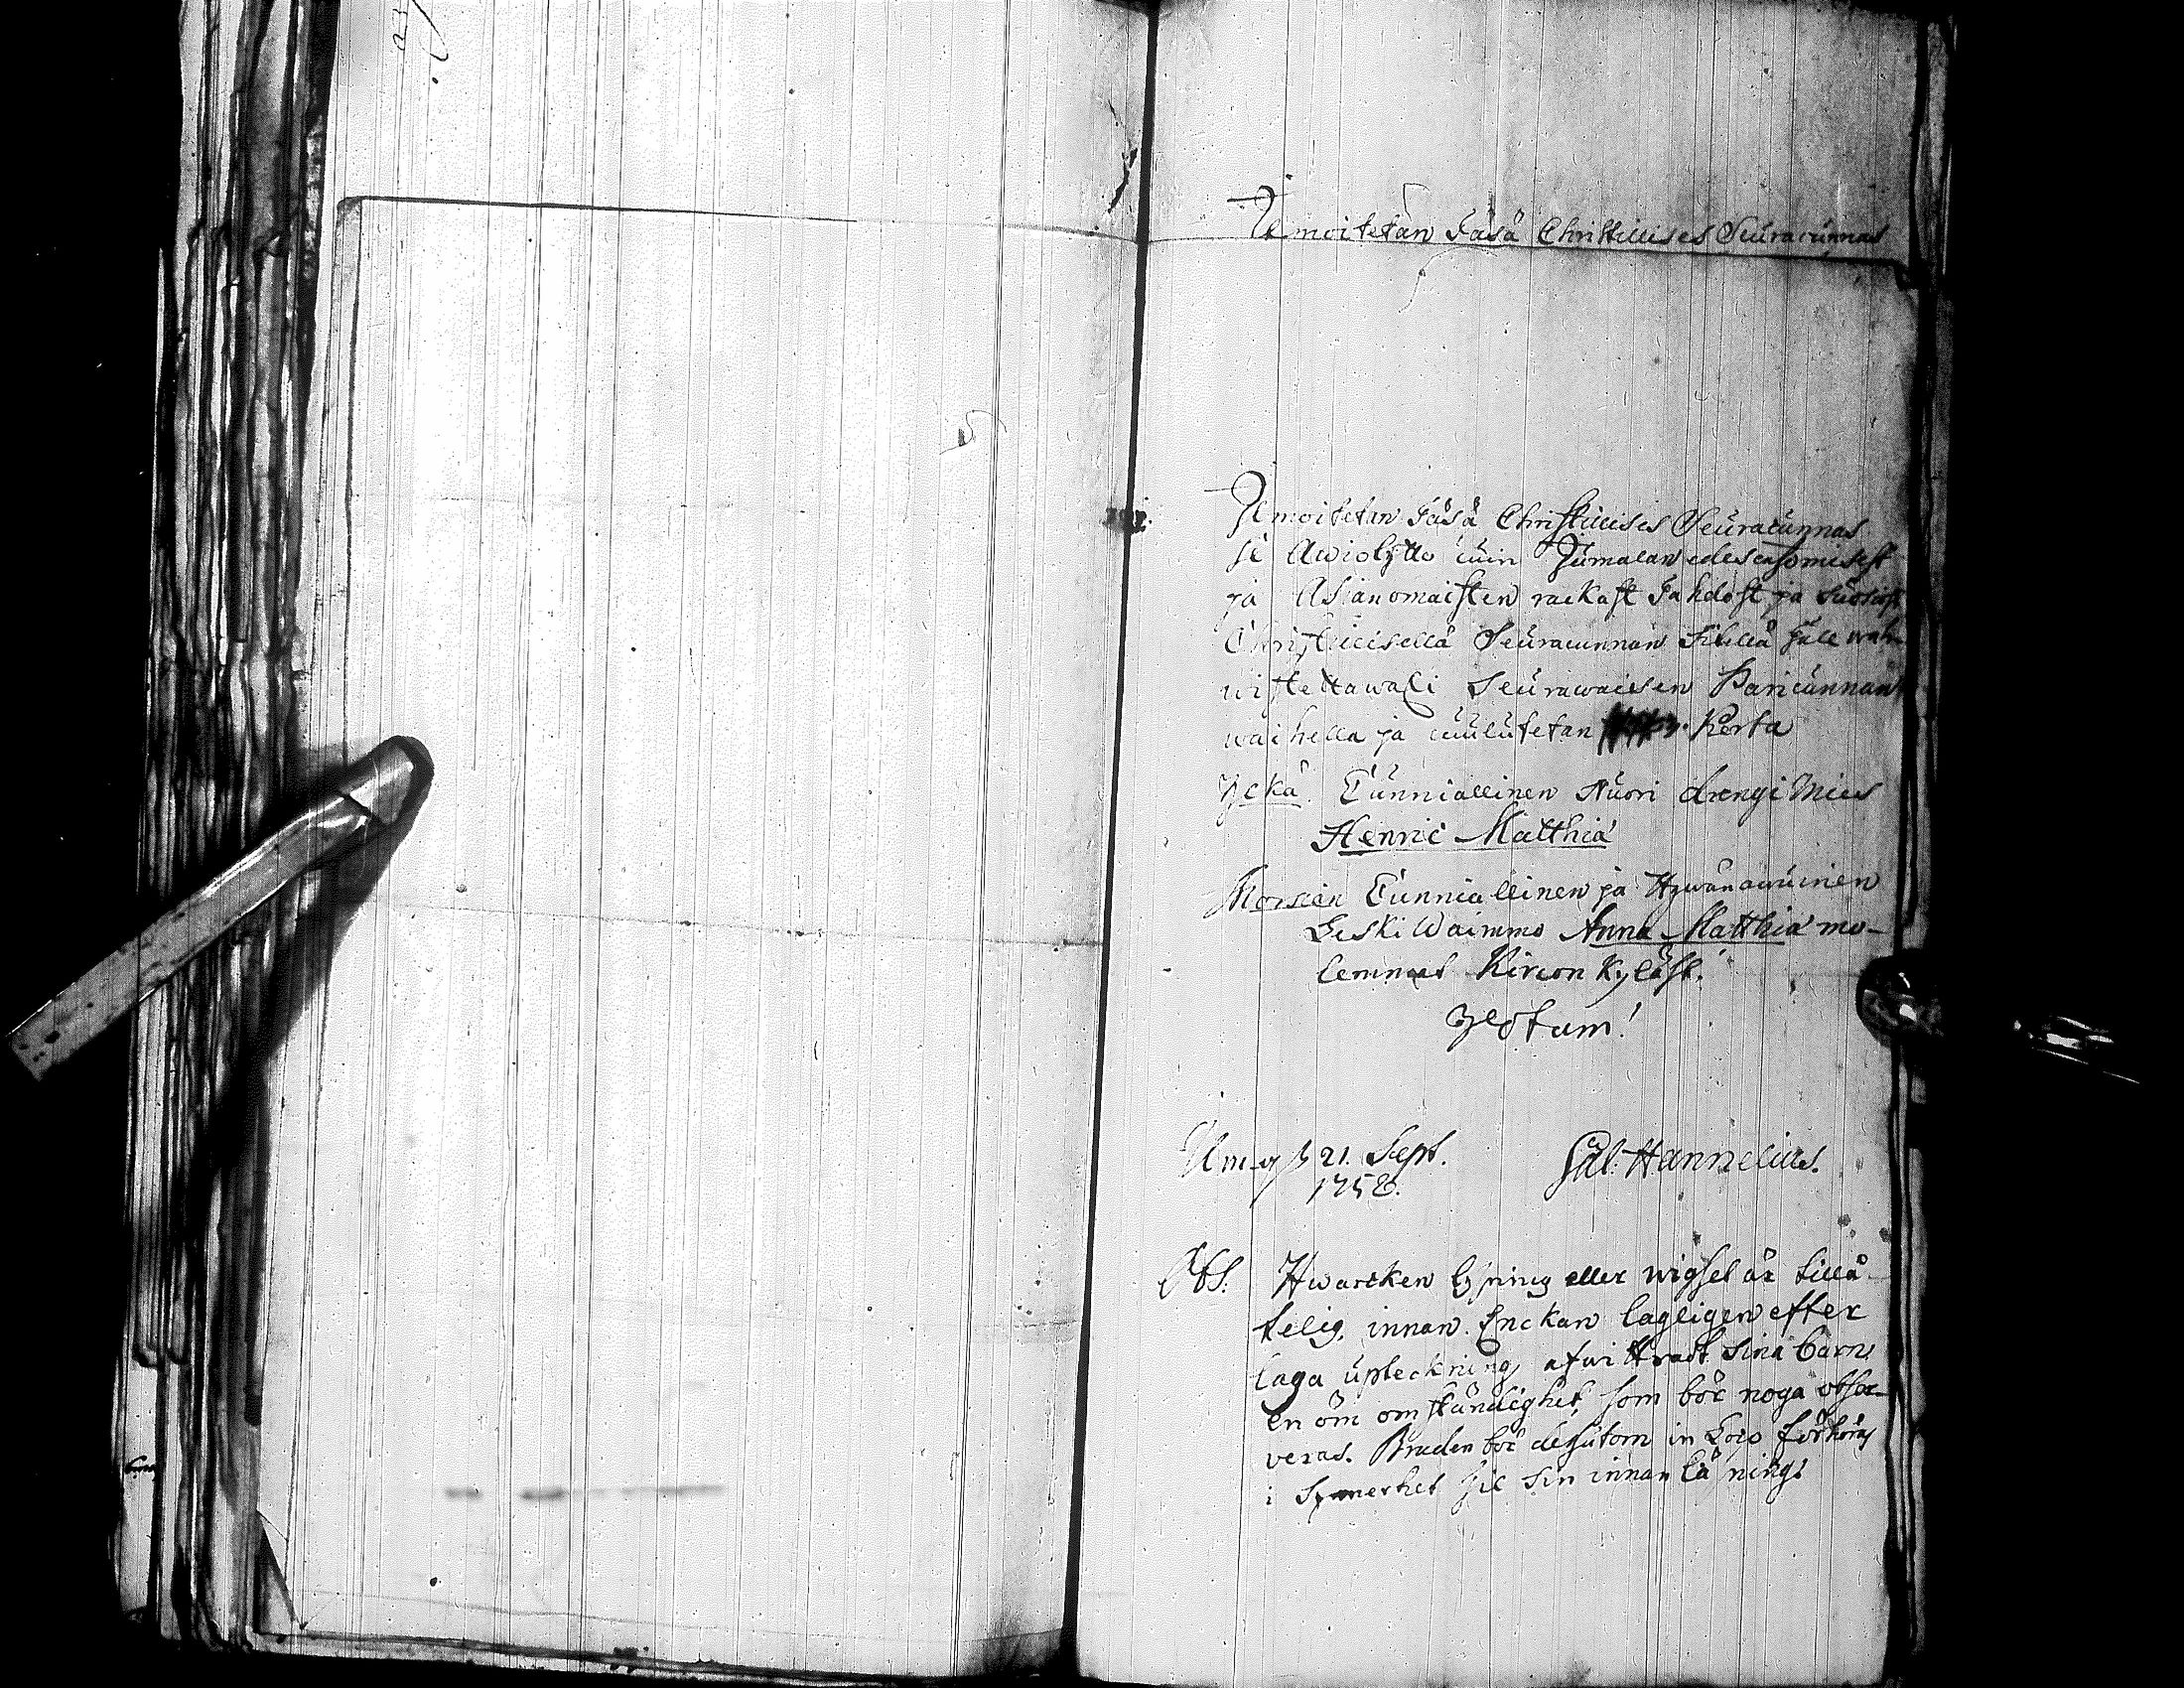 Ilmoitetan Täsä Christillises Seuracunnas
Ilmoitetan Täsä Christillises Seuracunnas
se Awiokytto cuin Jumalan edescatzomisest
ja Asianomaisten rackast Tahdost ja suosiost
Christillisellä Seuracunnan Tilallä Jälle wah-
wistettawaxi Seurawaisen Paricunnan
waihella ja cuulutetan 3. Kerta
Ylkä. Cunniallinen Nuori drengi Mies
Henric Matthiæ
Morsian Cunniallinen ja Hywänawuinen
Leski Waimmo Anna Matthiæ mo-
lemmat Kircon Kyläst.
Votum!
21. Sept.
1758.
Gal: Hannelius.
Obs. Hwarcken lysning eller wigsel är tillå-
telig, innan Enckan lagligen efter
laga upteckning afwittrat sina barn,
en öm omständighet, som bör noga obser-
veras. Bruden bör dessutom in Loco förhöras
i Synnerhet til sin innan läsning.